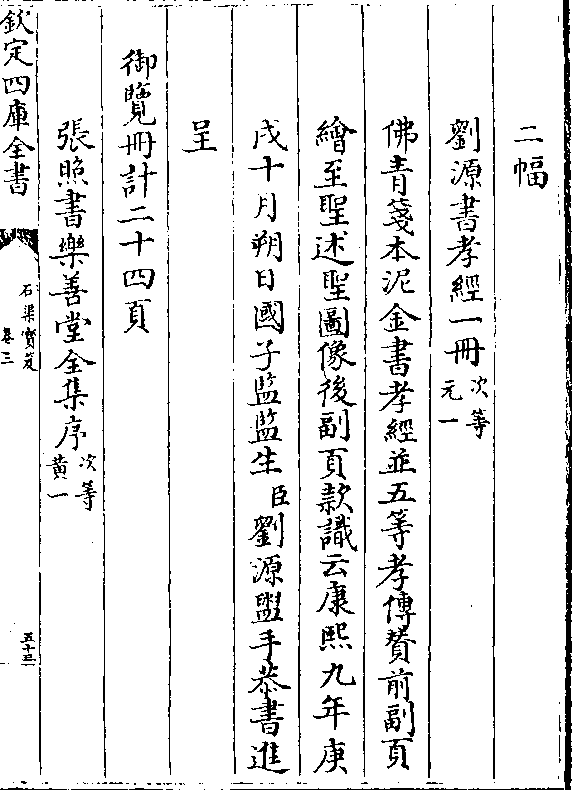 二幅
劉源書孝經一冊次等
元一
佛青箋本泥金書孝經並五等孝傳贊前副頁
繪至聖述聖圖像後副頁款識云康熙九年庚
戌十月朔日國子監監生臣劉源盥手恭書進
呈
御覽冊計二十四頁
張照書樂善堂全集序次等
黃一
欽定四庫全書
石渠寳笈
卷三
五十三